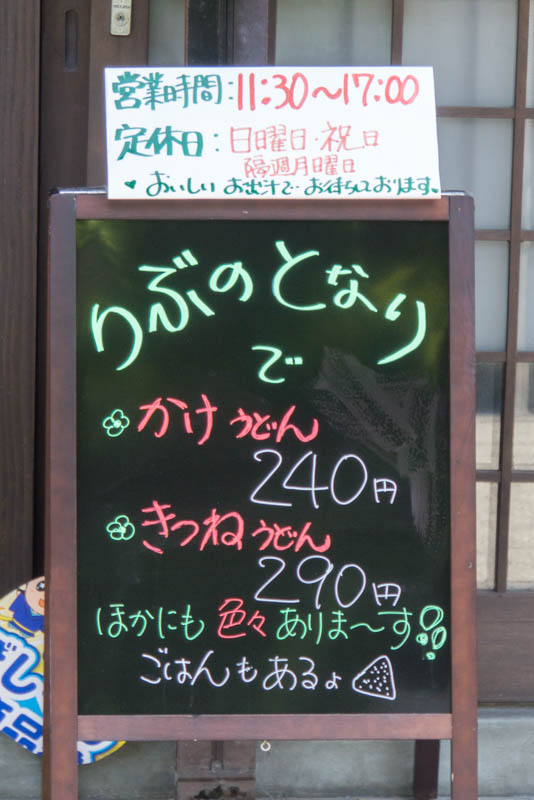 営業時間：11:30～17:00
定休日：日曜日・祝日
隔週月曜日
♥おいしいお出汁でお待ちしております♥
りぶのとなり
で
かけうどん
240円
きつねうどん
290円
ほかにも色々ありま～す
ごはんもあるよ